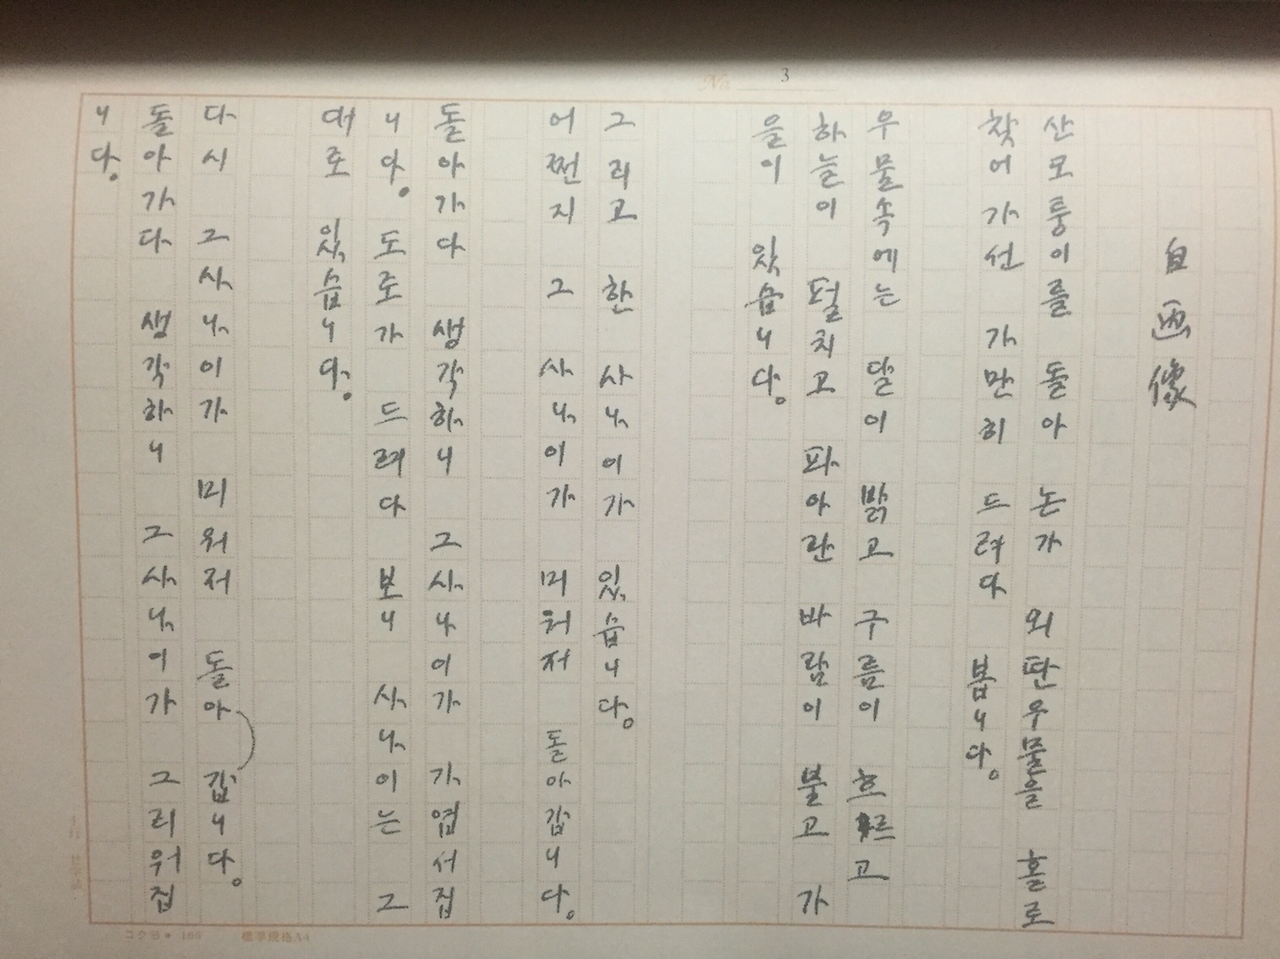 No 3
自画像
산모퉁이를 돌아 논가 외딴우물을 홀로
찾어가선 가만히 드려다 봅니다.
우물속에는 달이 밝고 구름이 흐르고
하늘이 펼치고 파아란 바람이 불고 가
을이 있습니다.
그리고 한 사나이가 있습니다.
어쩐지 그 사나이가 미워저 돌아갑니다.
돌아가다 생각하니 그사나이가 가엽서집
니다. 도로가 드려다 보니 사나이는 그
대로 있습니다.
다시 그사나이가 미워저 돌아갑니다.
돌아가다 생각하니 그사나이가 그리워집
니다.
コクヨ 169 標準規格A4